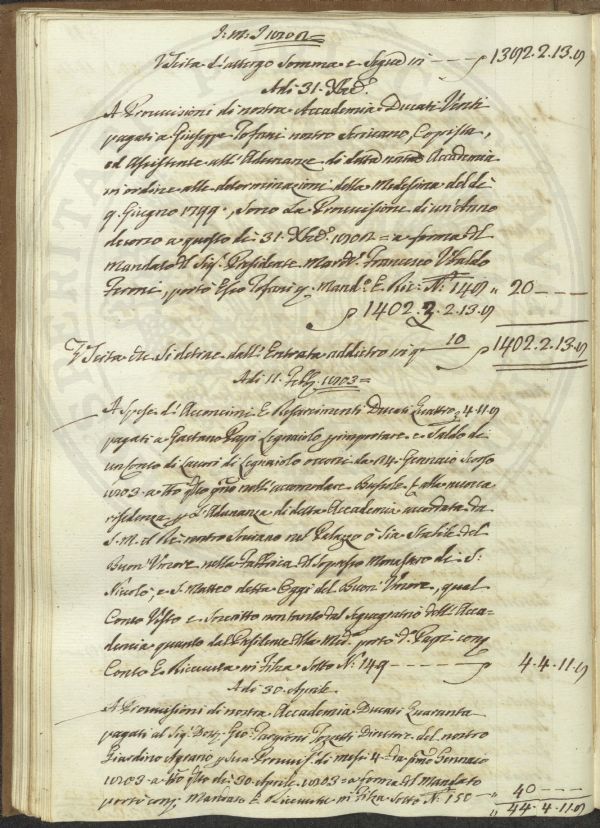 Uscita d'attergo Somma e Segue in — 1392.2.13.4
Adi 31. Xbre.
A Provvisioni di nostra Accademia Ducati Venti
pagati a Giuseppe Pofani nostro Scrivano, Copista,
ed Assistente all'Adunanze di detta nostra Accademia
in ordine alle determinazioni della Medesima del dì
9. Giugno 1799., sono La Provvisione di un'Anno
decorso a questo dì 31. Xbre. 1802 = a forma del
Mandato del Sig.r Presidente March.e Francesco Ubaldo
Feroni, portò Esso Pofani p. Mand.o E Ric: N.o 148 " 20 —
1402.2.2.13.4
Uscita che Si detrae dall'Entrata addietro in q. 10 1402.2.13.4
Adi 11. Febb. 1803 =
A Spese d'Acconcimi E Risarcimenti Ducati Quattro 4.11.4
pagati a Gaetano Papi Legnaiolo p importare e Saldo di
un Conto di Lavori di Legnaiolo occorsi da 24. Gennaio Scorso
1803 a tto qsto gno nell'accomodare Bussole E alla nuova
residenza p L'Adunanza di detta Accademia accordata da
S. M. il Re nostro Sovrano nel Palazzo o Sia Stabile del
Buon'Umore nella Fabbrica del Soppresso Monastero di S:
Niccolò, e S. Matteo detta Oggi del Buon'Umore, qual
Conto Visto e Soscritto non tanto dal Segretario dell'Acca=
demia quanto dal Presidente della Med.a portò d.o Papi con
Conto E Ricevuta in Filza Sotto N.o 149 — 4.4.11.4
Adi 30. Aprile.
A Provvisioni di nostra Accademia Ducati Quaranta
pagati al Sig. Dott. Gio: Targioni Tozzetti Direttore del nostro
Giardino Agrario p Sua Provvis.e di mesi 4. da pmo Gennaio
1803 a tto qsto dì 30. Aprile 1803 = a forma del Mandato
portò con Mandato E Ricevuta in Filza Sotto N.o 150 — " 40 —
44.4.11.4